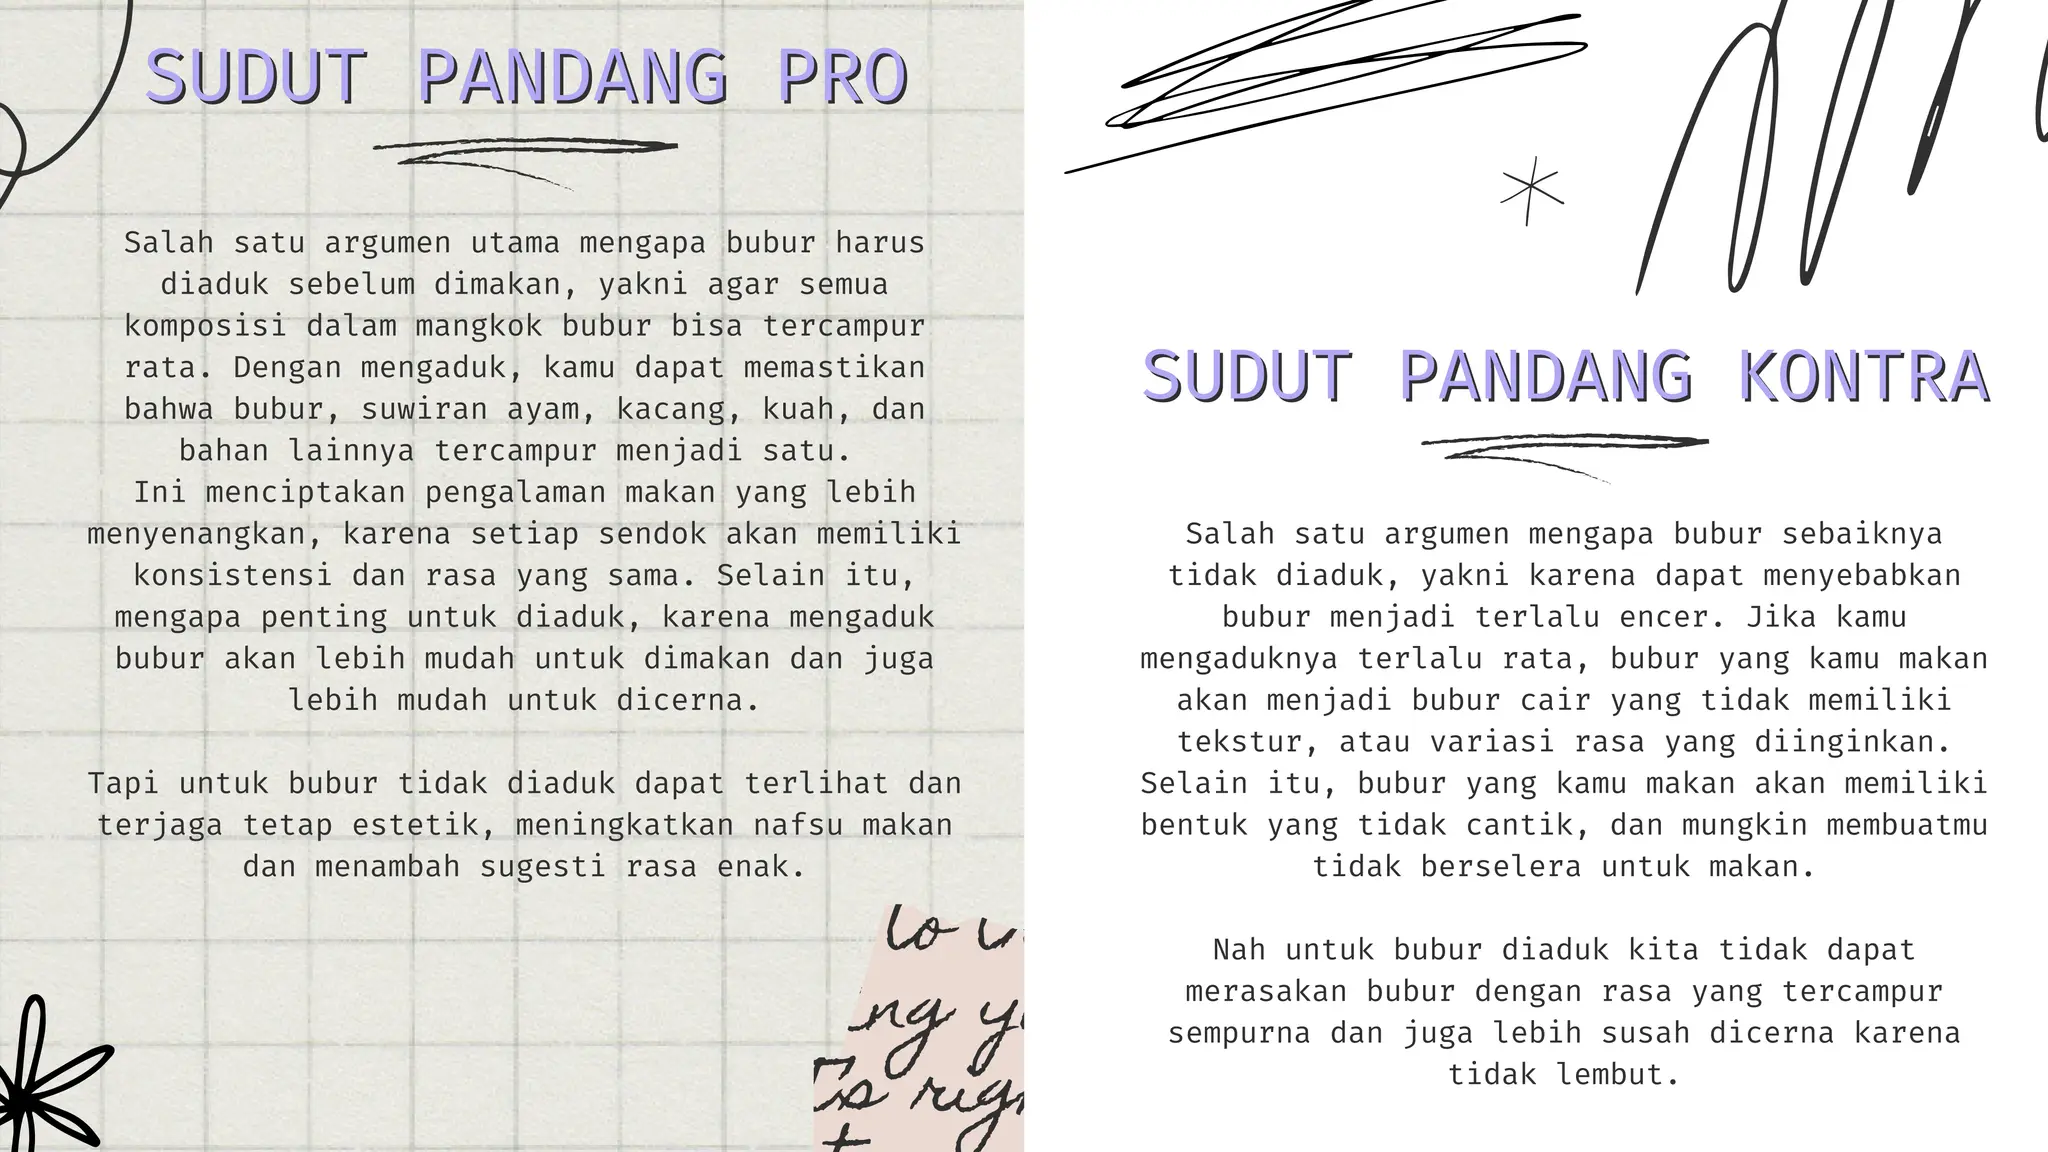 SUDUT PANDANG PRO
Salah satu argumen utama mengapa bubur harus
diaduk sebelum dimakan, yakni agar semua
komposisi dalam mangkok bubur bisa tercampur
rata. Dengan mengaduk, kamu dapat memastikan
bahwa bubur, suwiran ayam, kacang, kuah, dan
bahan lainnya tercampur menjadi satu.
Ini menciptakan pengalaman makan yang lebih
menyenangkan, karena setiap sendok akan memiliki
konsistensi dan rasa yang sama. Selain itu,
mengapa penting untuk diaduk, karena mengaduk
bubur akan lebih mudah untuk dimakan dan juga
lebih mudah untuk dicerna.
Tapi untuk bubur tidak diaduk dapat terlihat dan
terjaga tetap estetik, meningkatkan nafsu makan
dan menambah sugesti rasa enak.
SUDUT PANDANG KONTRA
Salah satu argumen mengapa bubur sebaiknya
tidak diaduk, yakni karena dapat menyebabkan
bubur menjadi terlalu encer. Jika kamu
mengaduknya terlalu rata, bubur yang kamu makan
akan menjadi bubur cair yang tidak memiliki
tekstur, atau variasi rasa yang diinginkan.
Selain itu, bubur yang kamu makan akan memiliki
bentuk yang tidak cantik, dan mungkin membuatmu
tidak berselera untuk makan.
Nah untuk bubur diaduk kita tidak dapat
merasakan bubur dengan rasa yang tercampur
sempurna dan juga lebih susah dicerna karena
tidak lembut.